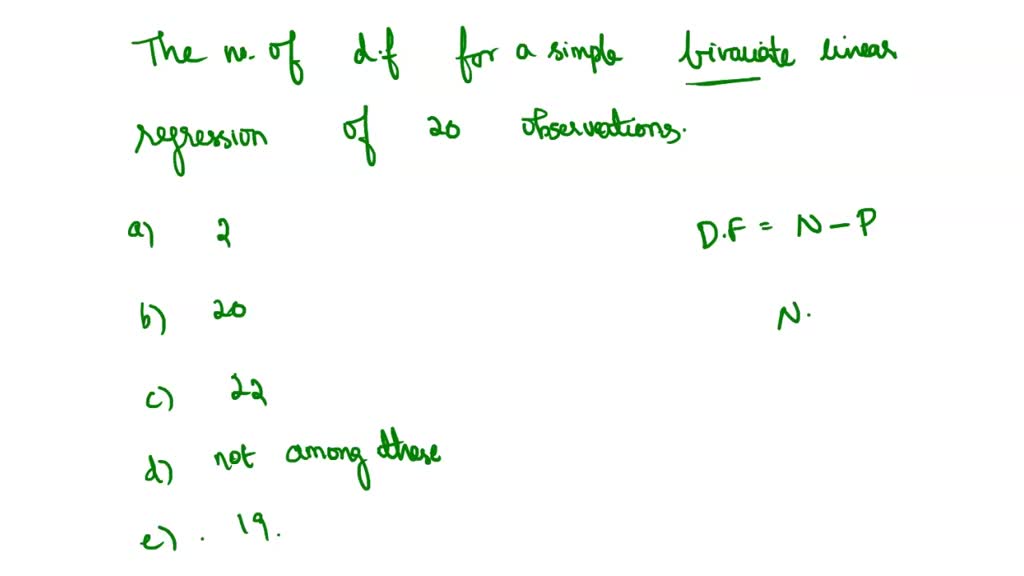 The no. of d.f for a simple bivariate linear
regression of 20 observations.
a) 2
D.F = N - P
b) 20
N.
c) 22
d) not among these
e) . 19.